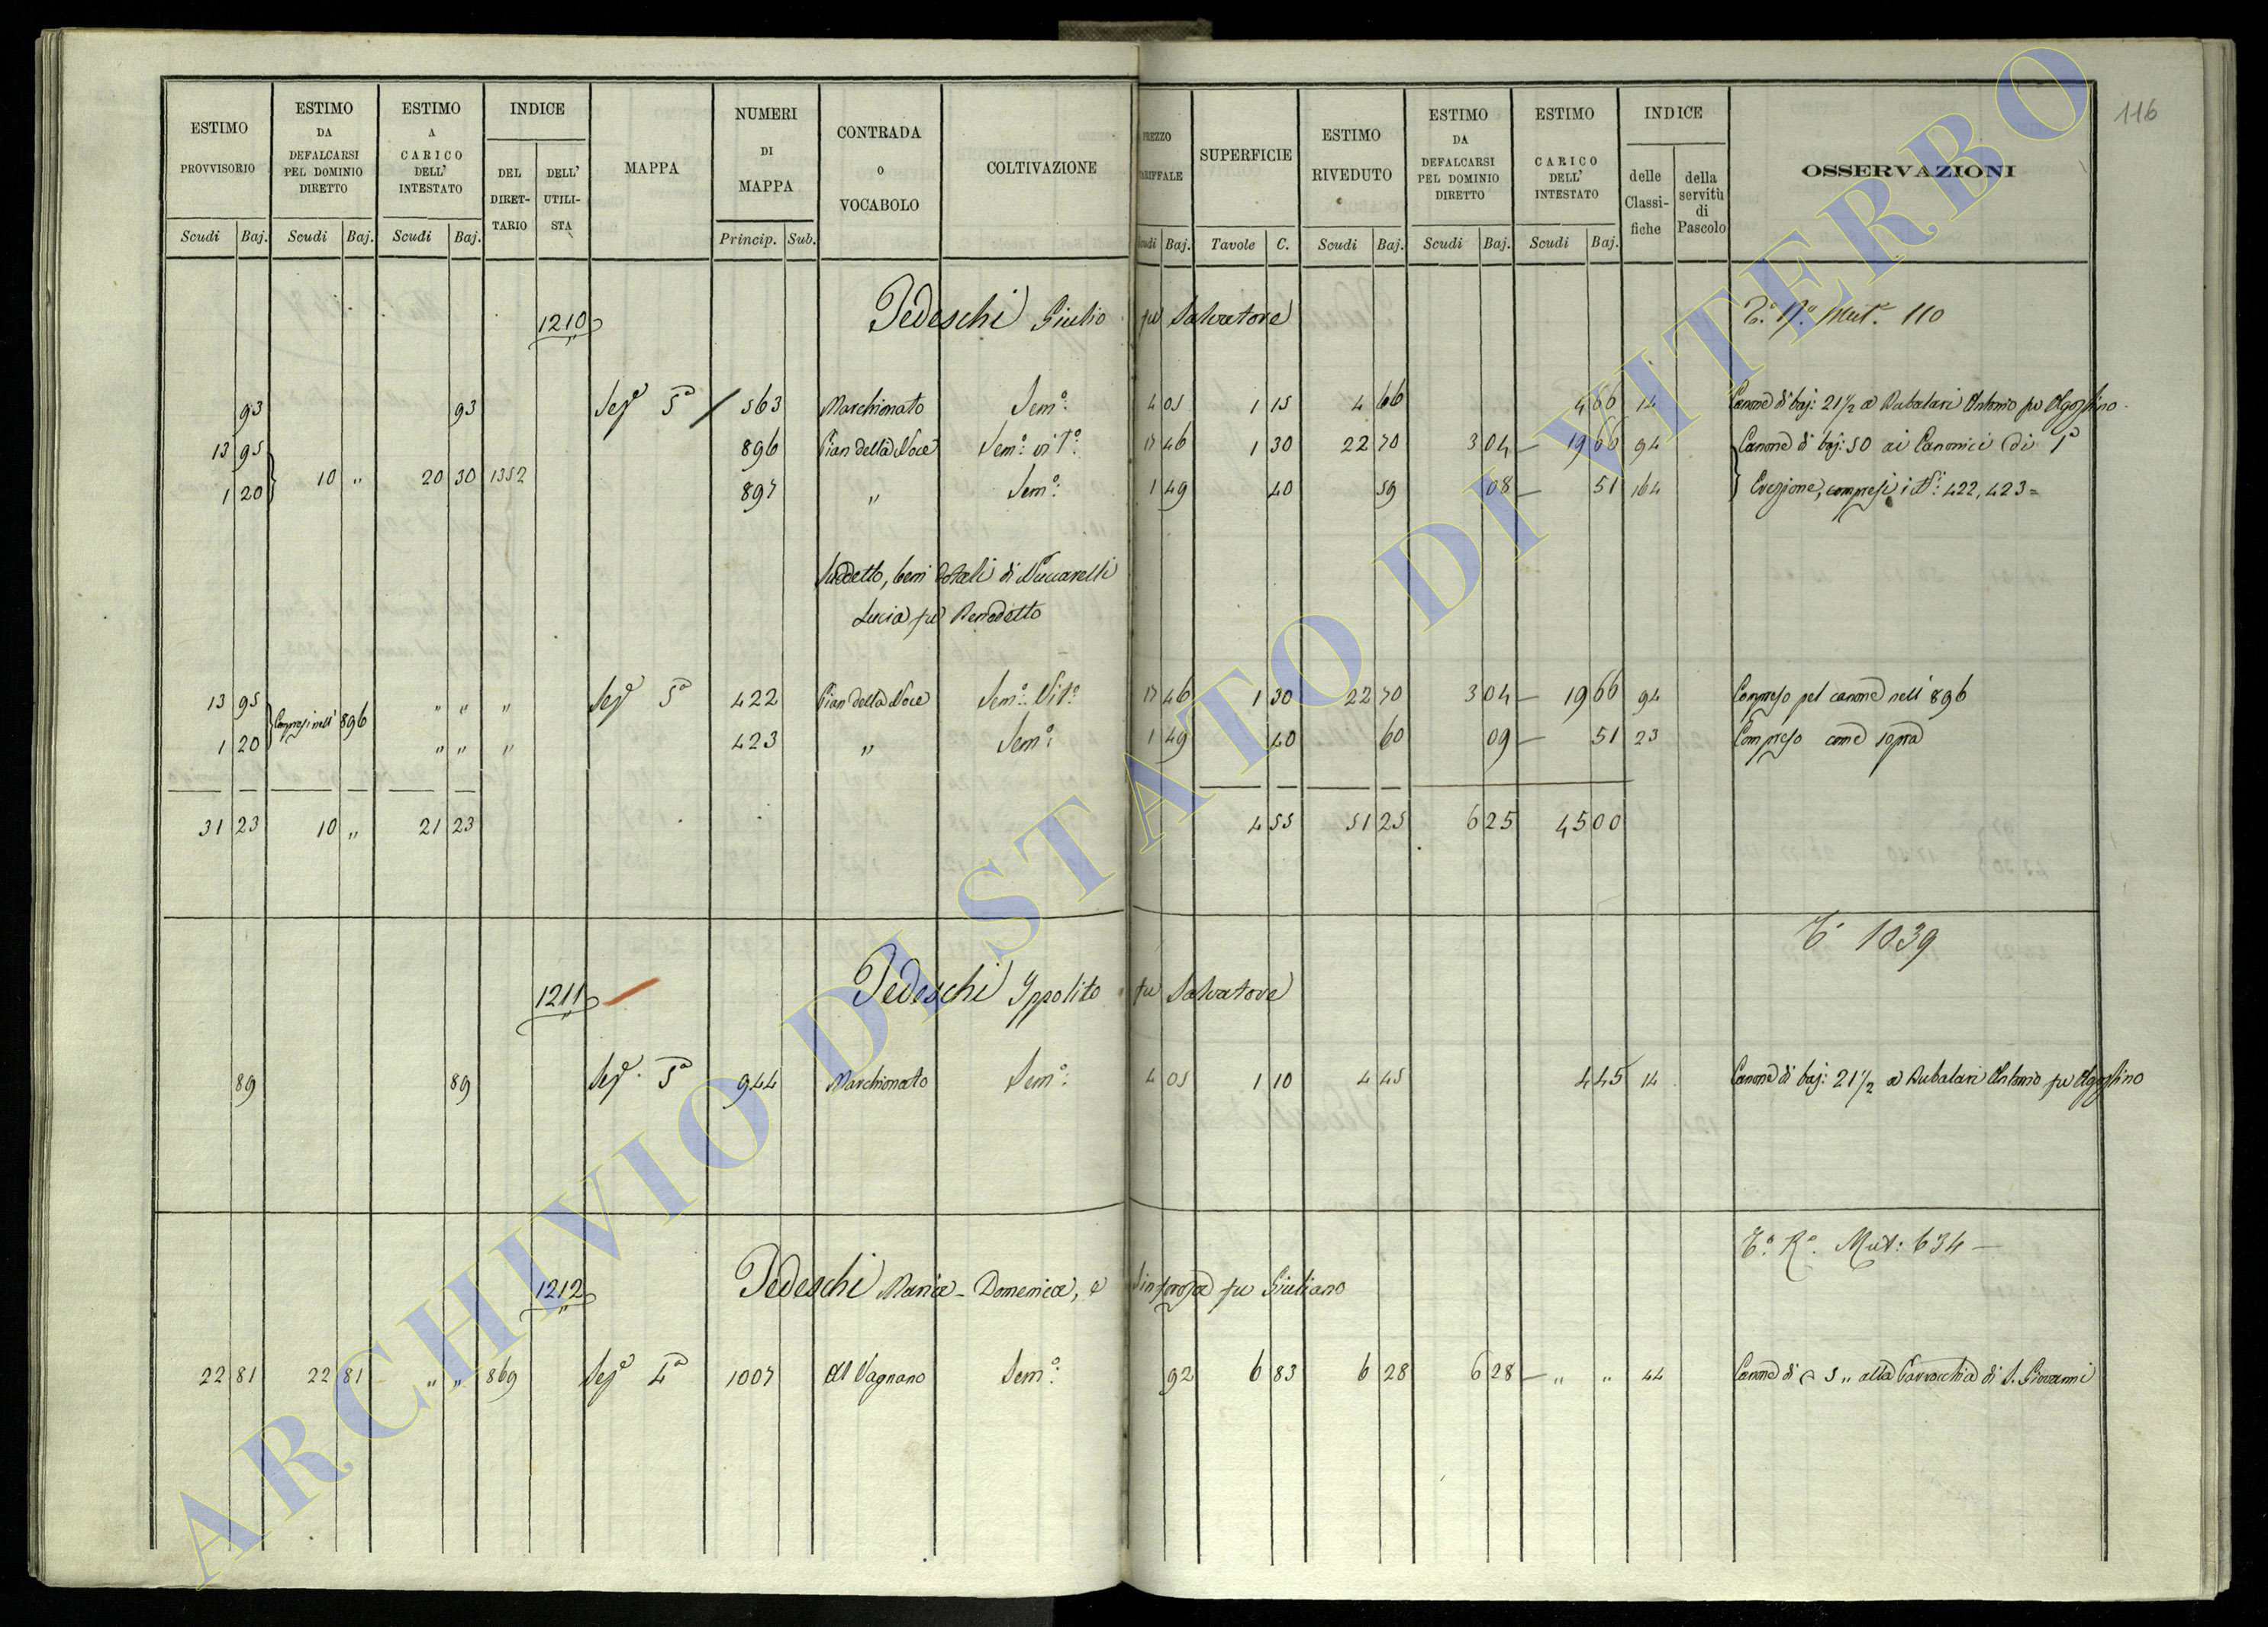 116
ESTIMO PROVVISORIO
ESTIMO DA DEFALCARSI PEL DOMINIO DIRETTO
ESTIMO A CARICO DELL' INTESTATO
INDICE
DEL DIRET-TARIO
DELL' UTILI-STA
MAPPA
NUMERI DI MAPPA
CONTRADA O VOCABOLO
COLTIVAZIONE
PREZZO TARIFFALE
SUPERFICIE
ESTIMO RIVEDUTO
ESTIMO DA DEFALCARSI PEL DOMINIO DIRETTO
ESTIMO CARICO DELL' INTESTATO
INDICE
delle Classi-fiche
della servitù di Pascolo
OSSERVAZIONI
Scudi Baj. Scudi Baj. Scudi Baj. Princip. Sub. Scudi Baj. Tavole C. Scudi Baj. Scudi Baj. Scudi Baj.
1210 Tedeschi Giulio fu Salvatore Mut. 110
93 93 Sez.e 5a 563 Marchionato Sem.o 4 05 1 15 4 66 4 66 14 Canone di baj: 21 1/2 a Rubalari Antonio fu Agostino
13 95 896 Pian della Noce Sem.o vit.o 17 46 1 30 22 70 3 04 — 19 66 94 Canone di baj: 50 ai Canonici di 1a
1 20 10 „ 20 30 1352 897 „ Sem.o 1 49 40 59 08 — 51 164 Erezione, compresi i N.i 422, 423 =
Suddetto, beni dotali di Nuccarelli
Lucia fu Benedetto
13 95 Compresi nell' 896 „ „ „ Sez.e 5a 422 Pian della Noce Sem.o Vit.o 17 46 1 30 22 70 3 04 — 19 66 94 Compreso pel canone nell' 896
1 20 „ „ „ 423 „ Sem.o 1 49 40 60 09 — 51 23 Compreso come sopra
31 23 10 „ 21 23 4 55 51 25 6 25 45 00
1039
1211 Tedeschi Ippolito fu Salvatore
89 89 Sez.e 5a 944 Marchionato Sem.o 4 05 1 10 4 45 4 45 14 Canone di baj: 21 1/2 a Rubalari Antonio fu Agostino
Mut: 634 —
1212 Tedeschi Maria - Domenica, e Sinforosa fu Giuliano
22 81 22 81 „ „ 869 Sez.e 4a 1007 Al Vagnano Sem.o 92 6 83 6 28 6 28 — „ „ 44 Canone di 5 „ alla Parrocchia di S. Giovanni
ARCHIVIO DI STATO DI VITERBO